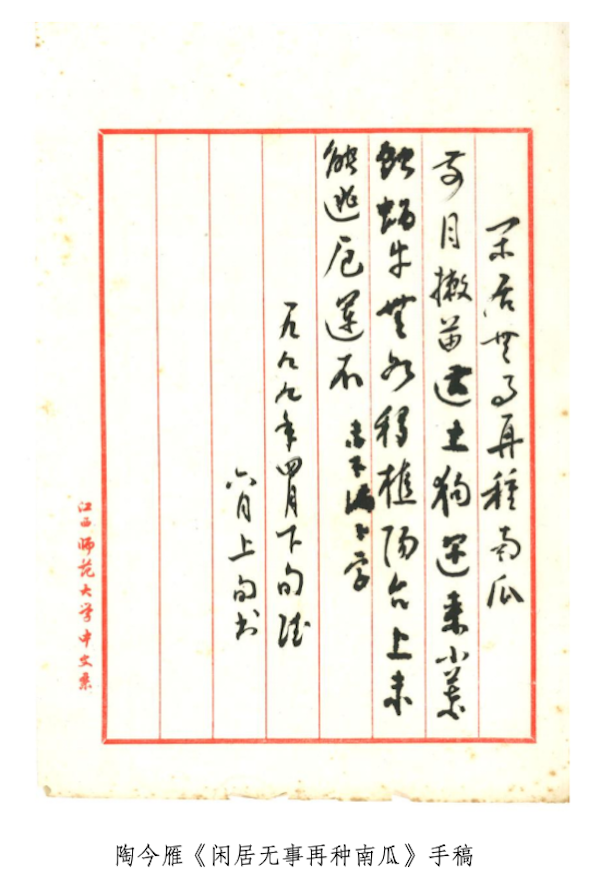 闲居无事再种南瓜
前月撒苗土狗来小叶
蚀蜗牛无如移植阳台上未
能逃厄运不
未下漏卜字
一九九九年四月下旬
六月上旬书
江西师范大学中文系
陶今雁《闲居无事再种南瓜》手稿